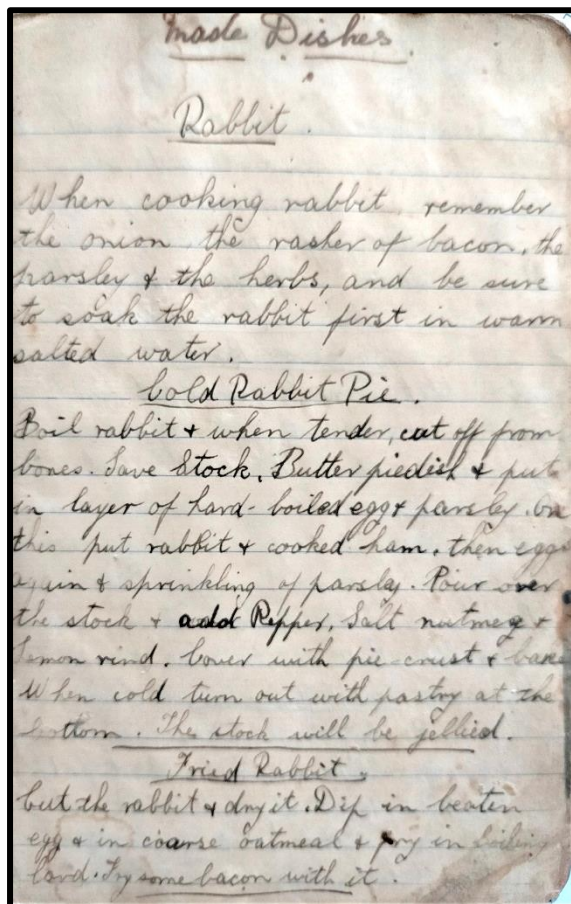 Made Dishes
Rabbit.
When cooking rabbit remember
the onion the rasher of bacon, the
parsley & the herbs, and be sure
to soak the rabbit first in warm
salted water.
Cold Rabbit Pie.
Boil rabbit & when tender, cut off from
bones. Save Stock. Butter piedish & put
in layer of hard-boiled egg & parsley. On
this put rabbit & cooked ham, then egg
again & sprinkling of parsley. Pour over
the stock & add Pepper, Salt nutmeg &
Lemon rind. Cover with pie crust & bake
When cold turn out with pastry at the
bottom. The stock will be jellied.
Fried Rabbit.
Cut the rabbit & dry it. Dip in beaten
egg & in coarse oatmeal & fry in boiling
lard. Fry some bacon with it.